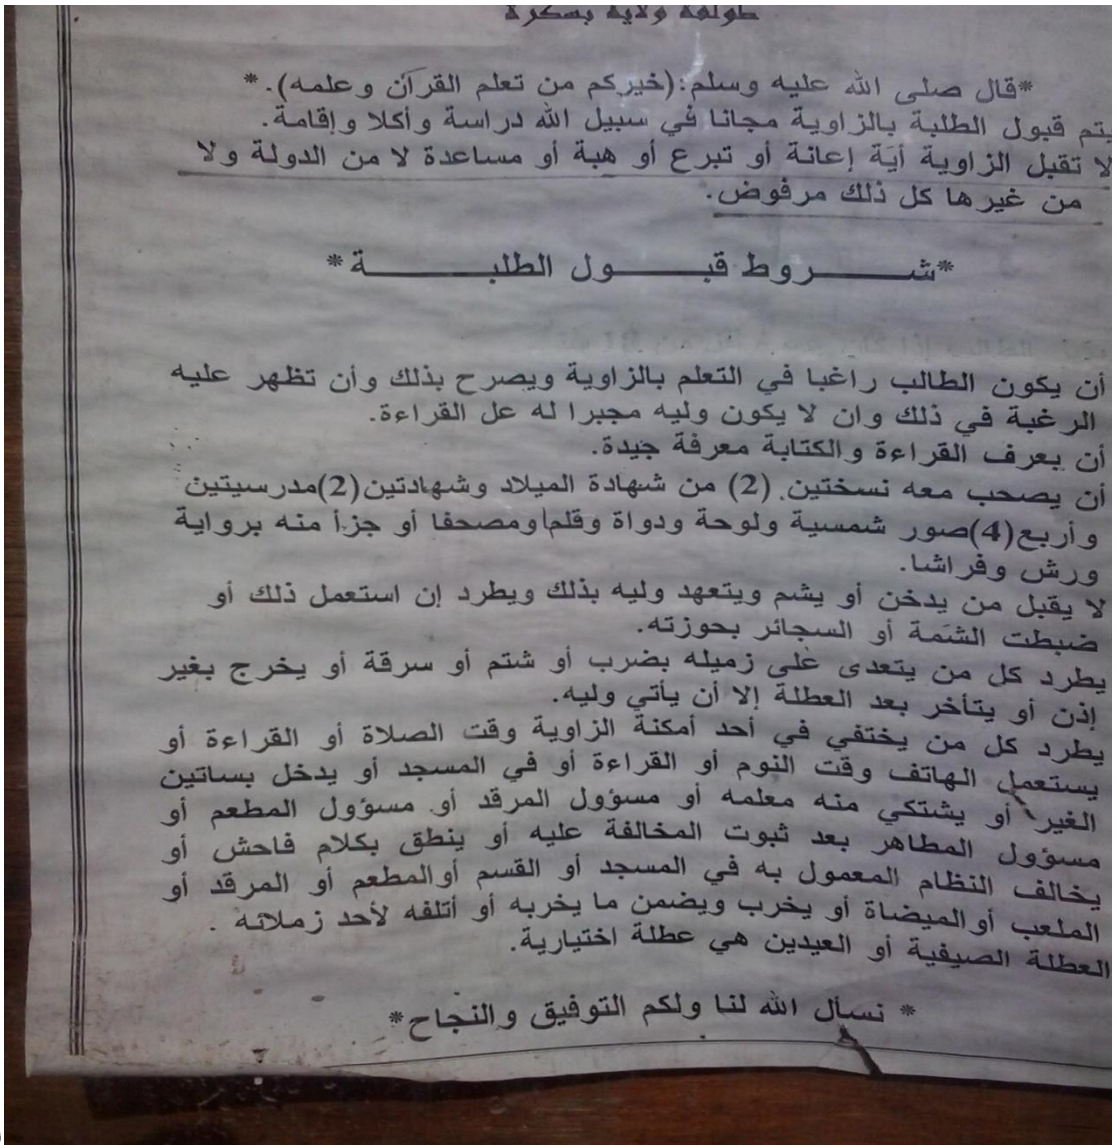 طولقة ولاية بسكرة
*قال صلى الله عليه وسلم:(خيركم من تعلم القرآن وعلمه).*
يتم قبول الطلبة بالزاوية مجانا في سبيل الله دراسة وأكلا وإقامة.
لا تقبل الزاوية أيَة إعانة أو تبرع أو هبة أو مساعدة لا من الدولة ولا
من غيرها كل ذلك مرفوض.
*شـــــروط قبـــــول الطلبـــــــة*
أن يكون الطالب راغبا في التعلم بالزاوية ويصرح بذلك وأن تظهر عليه
الرغبة في ذلك وان لا يكون وليه مجبرا له عل القراءة.
أن يعرف القراءة والكتابة معرفة جيدة.
أن يصحب معه نسختين (2) من شهادة الميلاد وشهادتين(2)مدرسيتين
وأربع(4)صور شمسية ولوحة ودواة وقلما ومصحفا أو جزأ منه برواية
ورش وفراشا.
لا يقبل من يدخن أو يشم ويتعهد وليه بذلك ويطرد إن استعمل ذلك أو
ضبطت الشَمة أو السجائر بحوزته.
يطرد كل من يتعدى على زميله بضرب أو شتم أو سرقة أو يخرج بغير
إذن أو يتأخر بعد العطلة إلا أن يأتي وليه.
يطرد كل من يختفي في أحد أمكنة الزاوية وقت الصلاة أو القراءة أو
يستعمل الهاتف وقت النوم أو القراءة أو في المسجد أو يدخل بساتين
الغير أو يشتكي منه معلمه أو مسؤول المرقد أو مسؤول المطعم أو
مسؤول المطاهر بعد ثبوت المخالفة عليه أو ينطق بكلام فاحش أو
يخالف النظام المعمول به في المسجد أو القسم أوالمطعم أو المرقد أو
الملعب أوالميضاة أو يخرب ويضمن ما يخربه أو أتلفه لأحد زملائه .
العطلة الصيفية أو العيدين هي عطلة اختيارية.
* نسأل الله لنا ولكم التوفيق والنجاح*